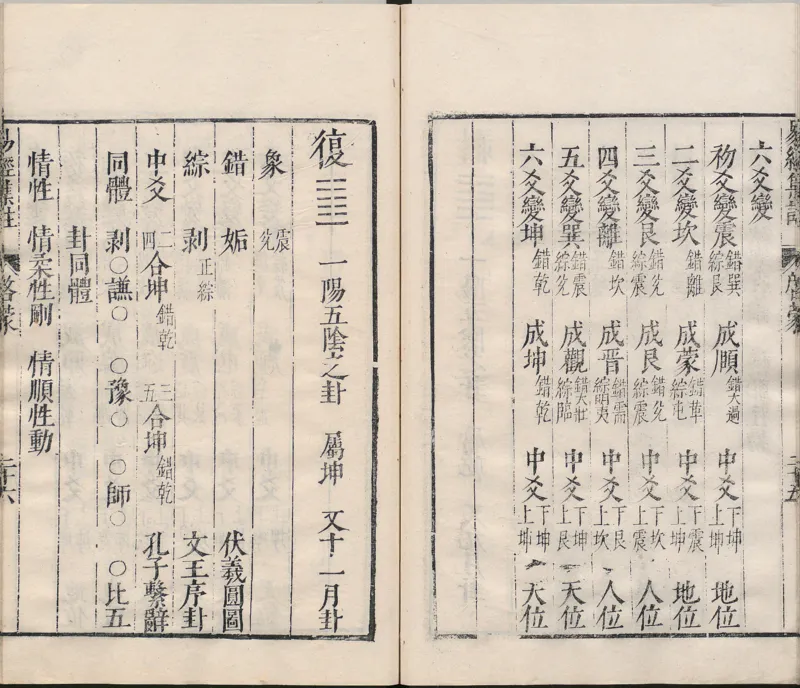 六爻變
初爻變震 錯巽綜艮 成頤 錯大過 中爻 下坤上坤 地位
二爻變坎 錯離 成蒙 錯革綜屯 中爻 下震上坤 地位
三爻變艮 錯兊綜震 成艮 錯兊綜震 中爻 下坎上震 人位
四爻變離 錯坎 成晉 錯需綜明夷 中爻 下艮上坎 人位
五爻變巽 錯震綜兊 成觀 錯大壯綜臨 中爻 下坤上艮 天位
六爻變坤 錯乾 成坤 錯乾 中爻 下坤上坤 天位
復 一陽五陰之卦 屬坤 又十一月卦
象 震
錯 姤 伏羲圓圖
綜 剝 正綜 文王序卦
中爻 二四合坤 錯乾 三五合坤 錯乾 孔子繫辭
同體 剝○謙○ ○豫○ ○師○ ○比五
卦同體
情性 情柔性剛 情順性動